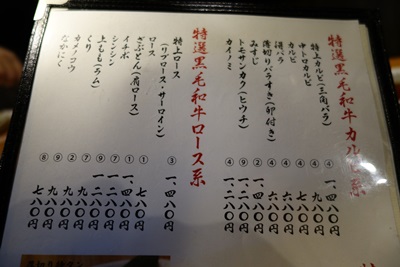 特選黒毛和牛カルビ系
特上カルビ(三角バラ) ④ 一、四八〇円
中トロカルビ ④ 九八〇円
カルビ ④ 八八〇円
得バラ ④ 六八〇円
薄切りバラすき(卵付き) ④ 六八〇円
みすじ ② 一、四八〇円
トモサンカク(ヒウチ) ⑨ 一、二八〇円
カイノミ ④ 一、二八〇円
特選黒毛和牛ロース系
特上ロース ③ 一、四八〇円
(リブロース・サーロイン)
ロース ① 七八〇円
ざぶとん(肩ロース) ① 一、四八〇円
イチボ ⑦ 一、二八〇円
シンシン ⑨ 一、二八〇円
上もも(らむ) ⑦ 九八〇円
くり ② 九八〇円
カメノコウ ⑨ 九八〇円
なかにく ⑧ 七八〇円